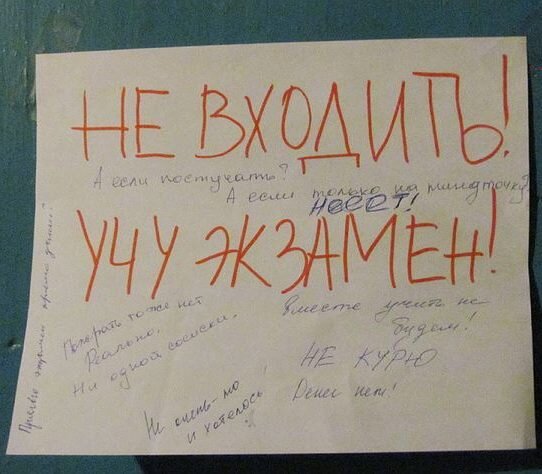 НЕ ВХОДИТЬ!
А если постучать?
А если только на минуточку?
НЕЕЕТ!
УЧУ ЭКЗАМЕН!
Пожрать тоже нет
Реально.
Ни одной сосиски.
Вместе учить не
будем!
НЕ КУРЮ
Денег нет!
Не очень-то
и хотелось